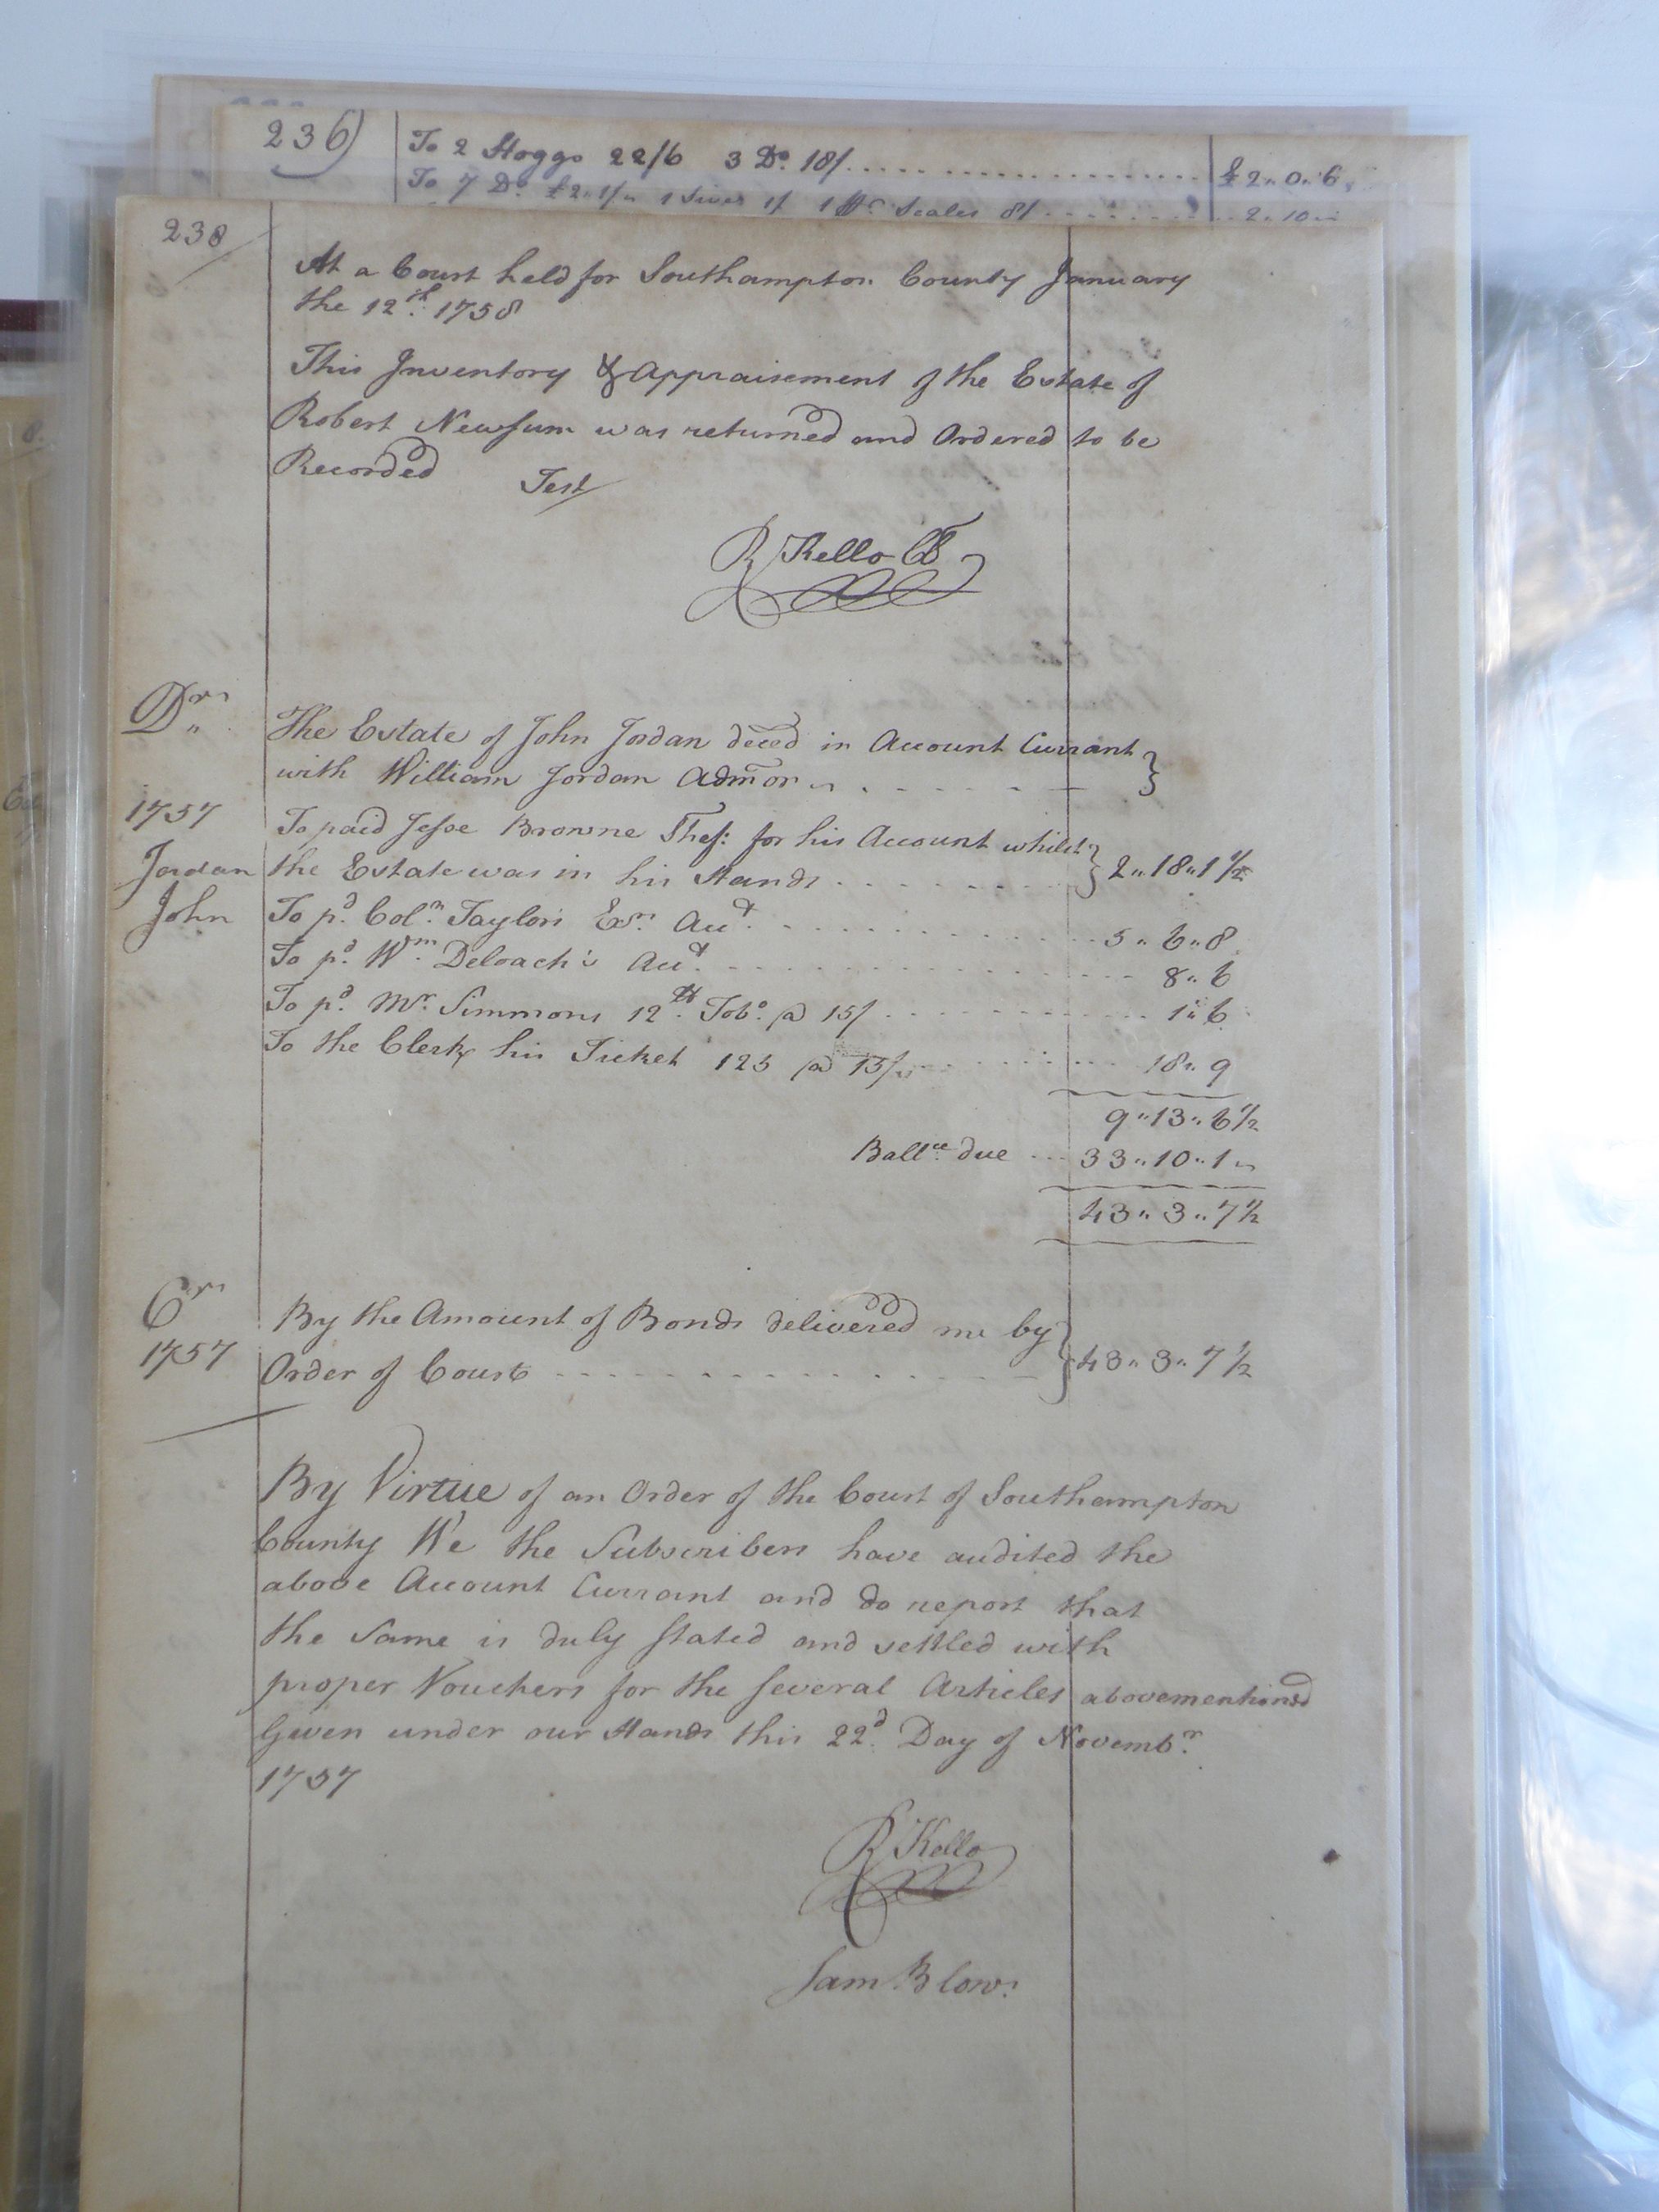 236)
To 2 Hoggs 22/6 3 Do. 18/ £2„0„6
To 7 Do. £2„1/„ 1 Sive 1/ 1 pr Scales 8/ 2„10„
238
At a Court held for Southampton County January
the 12th. 1758
This Inventory & Appraisement of the Estate of
Robert Newsum was returned and Ordered to be
Recorded Test
R Kello CC
Drs.
The Estate of John Jordan deced in Account Currant
with William Jordan Admor
1757
To paid Jesse Browne Shef: for his Account whilst
Jordan
the Estate was in his Hands 2„18„1½
John
To pd. Colo. Taylors Exrs. Acct. 5„6„8
To pd. Wm. Deloach's Acct. 8„6
To pd. Mr. Simmons 12lb. Tobo. @ 15/ 1„6
To the Clerk his Ticket 125 @ 15/ 18„9
9„13„6½
Ballce. due 33„10„1„
43„3„7½
Crs
1757
By the Amount of Bonds delivered me by
Order of Court 43„3„7½
By Virtue of an Order of the Court of Southampton
County We the Subscribers have audited the
above Account Currant and do report that
the same is duly stated and settled with
proper Vouchers for the several Articles abovementioned
Given under our Hands this 22d. Day of Novembr.
1757
R Kello
Sam Blow.